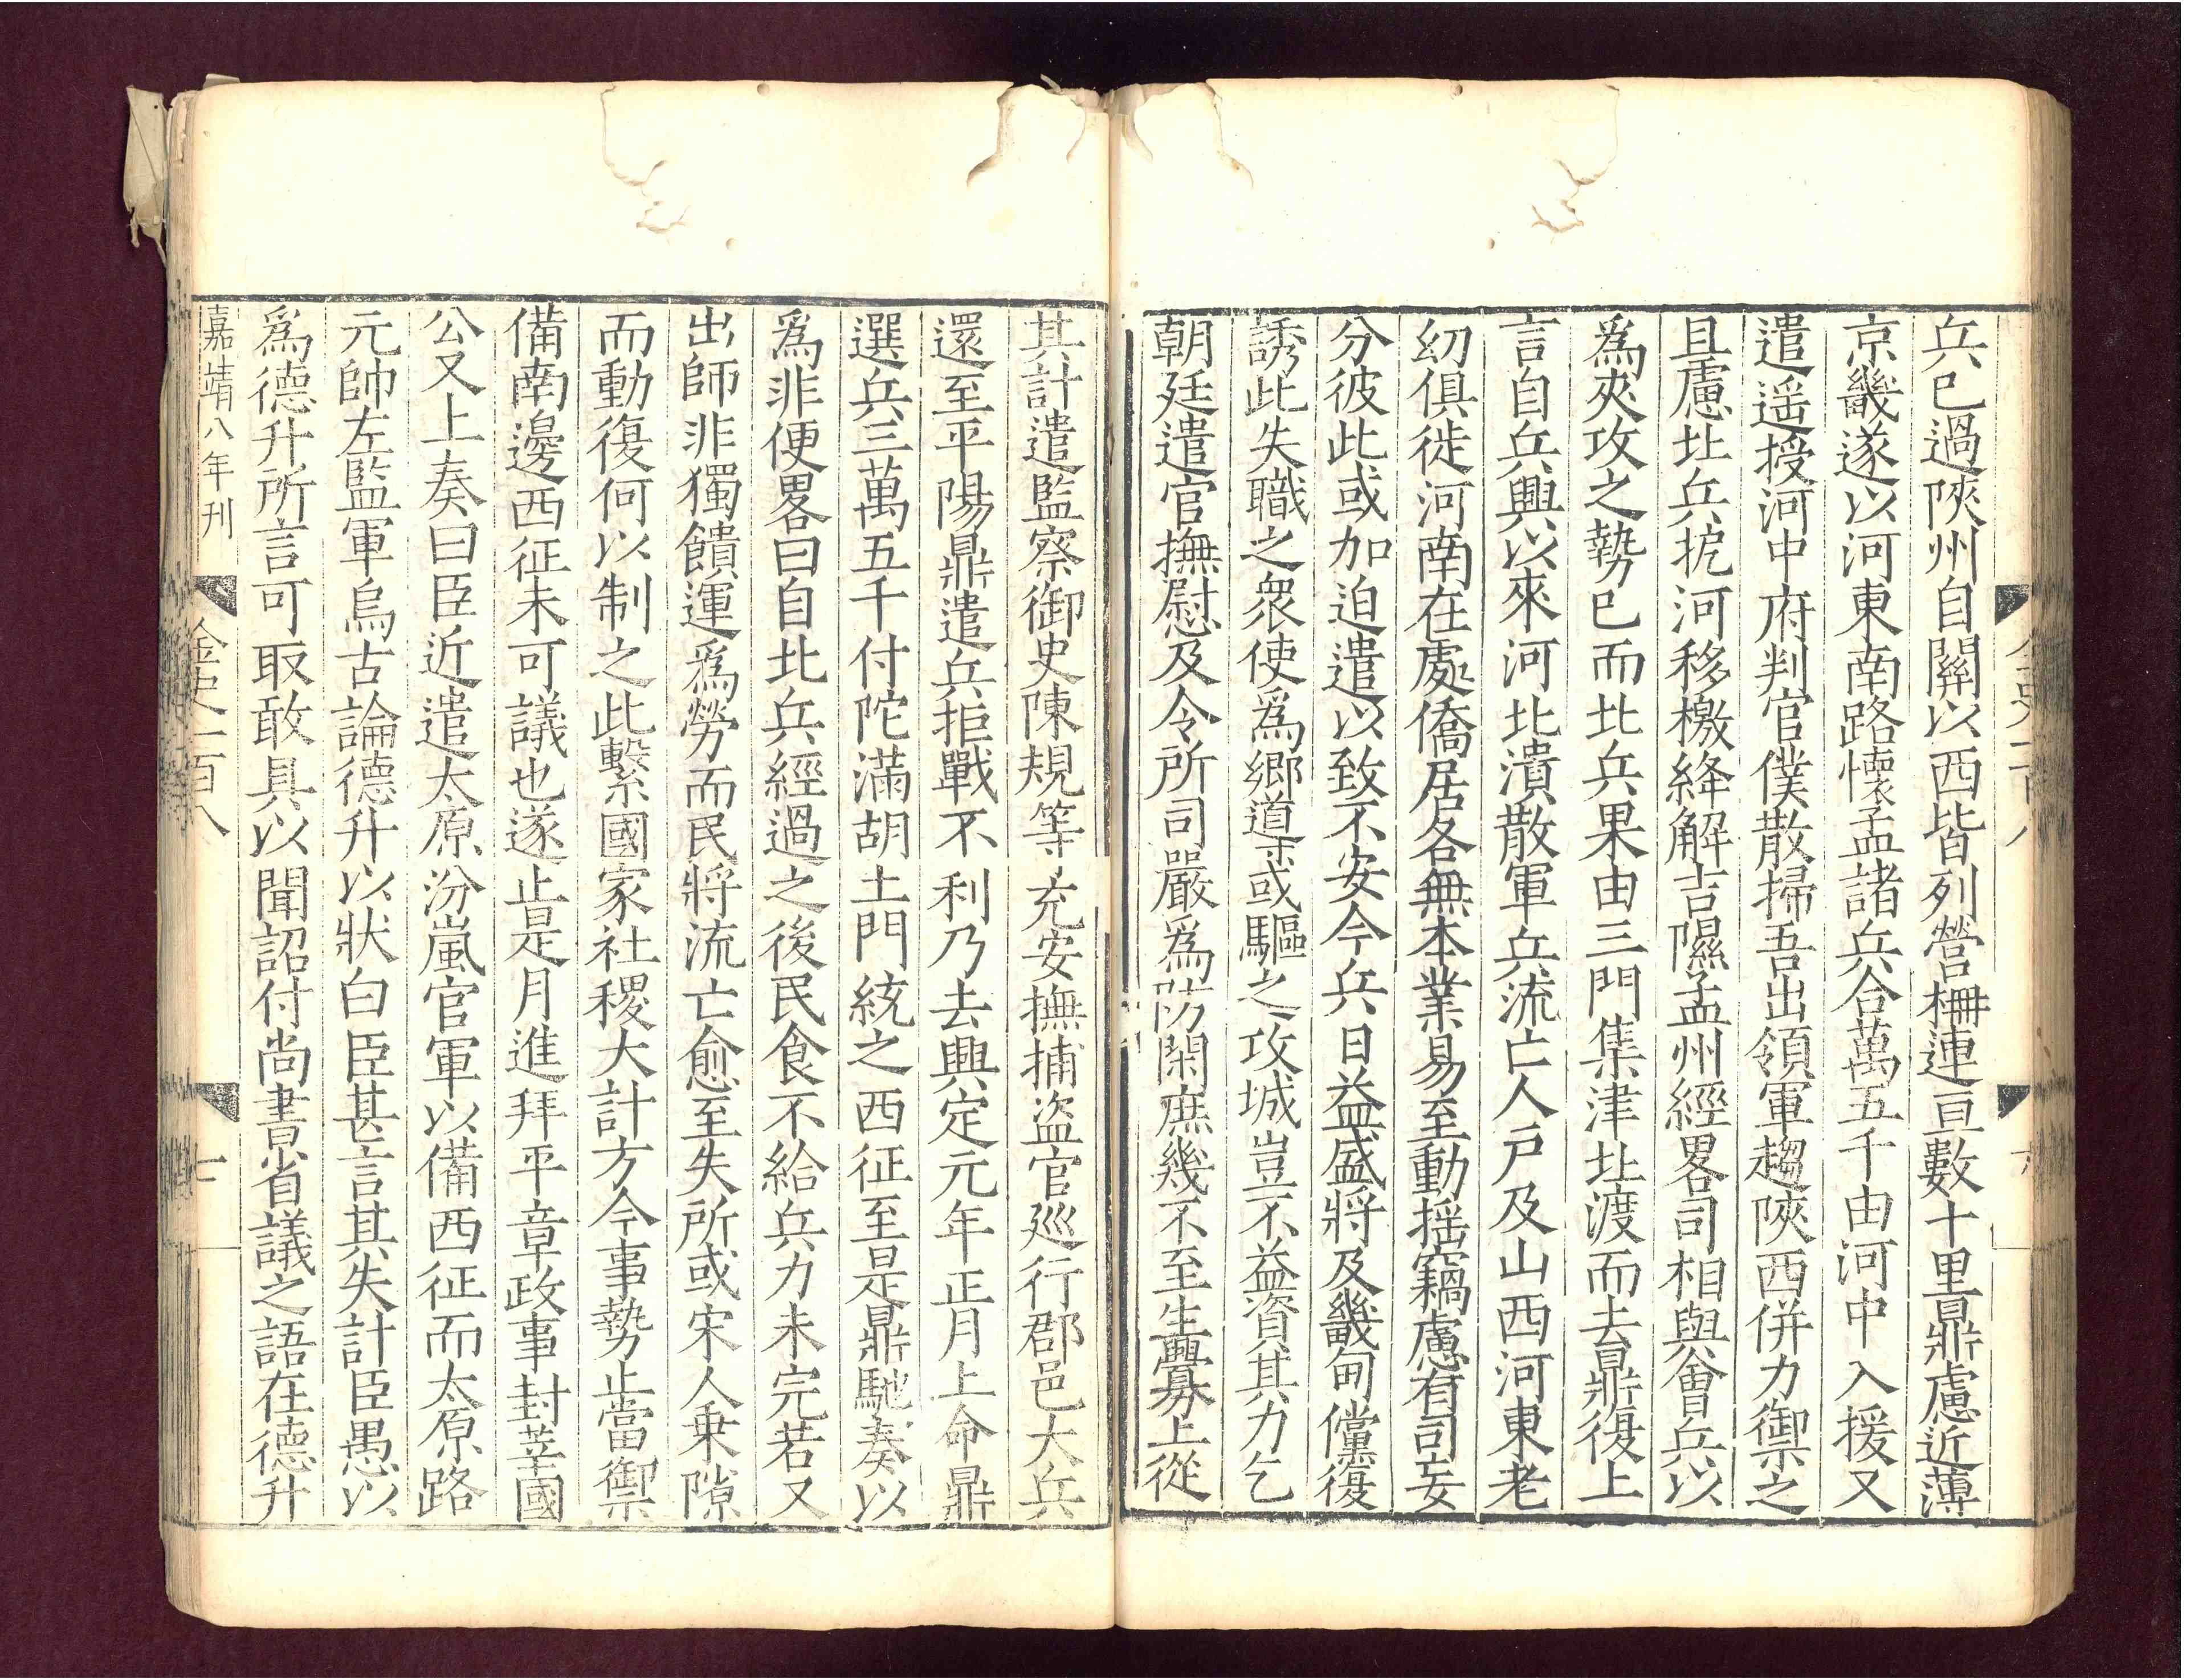 兵已過陝州自關以西皆列營柵連亘數十里鼎慮近薄
京畿遂以河東南路懷孟諸兵合萬五千由河中入援又
遣遥授河中府判官僕散掃吾出領軍趨陝西併力禦之
且慮北兵扼河移檄絳解吉隰孟州經畧司相與會兵以
爲夾攻之勢已而北兵果由三門集津北渡而去鼎復上
言自兵興以來河北潰散軍兵流亡人户及山西河東老
幼俱徙河南在處僑居各無本業易至動摇竊慮有司妄
分彼此或加迫遣以致不安今兵日益盛將及畿甸儻復
誘此失職之衆使爲鄉導或驅之攻城豈不益資其力乞
朝廷遣官撫慰及令所司嚴爲防閑庶幾不至生釁募上從
其計遣監察御史陳規等充安撫捕盜官巡行郡邑大兵
還至平陽鼎遣兵拒戰不利乃去興定元年正月上命鼎
選兵三萬五千付陀滿胡土門統之西征至是鼎馳奏以
爲非便畧曰自北兵經過之後民食不給兵力未完若又
出師非獨饋運爲勞而民將流亡愈至失所或宋人乗隙
而動復何以制之此繫國家社稷大計方今事勢止當禦
備南邊西征未可議也遂止是月進拜平章政事封莘國
公又上奏曰臣近遣太原汾嵐官軍以備西征而太原路
元帥左監軍烏古論德升以狀白臣甚言其失計臣愚以
爲德升所言可取敢具以聞詔付尚書省議之語在德升
嘉靖八年刊
金史一百八
七